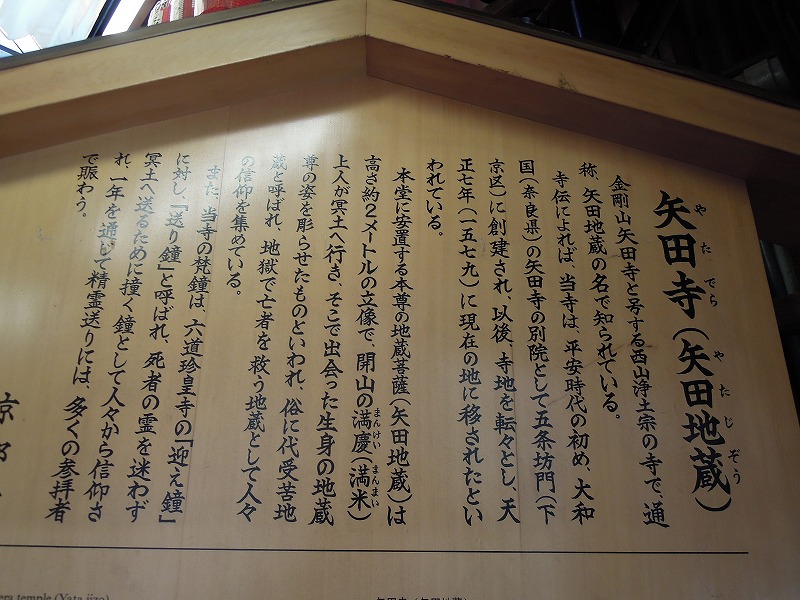 矢田寺（矢田地蔵）
やたでら やたじぞう
金剛山矢田寺と号する西山浄土宗の寺で、通
称、矢田地蔵の名で知られている。
寺伝によれば、当寺は、平安時代の初め、大和
国（奈良県）の矢田寺の別院として五条坊門（下
京区）に創建され、以後、寺地を転々とし、天
正七年（一五七九）に現在の地に移されたとい
われている。
本堂に安置する本尊の地蔵菩薩（矢田地蔵）は
高さ約２メートルの立像で、開山の満慶（満米）
まんけい まんまい
上人が冥土へ行き、そこで出会った生身の地蔵
尊の姿を彫らせたものといわれ、俗に代受苦地
蔵と呼ばれ、地獄で亡者を救う地蔵として人々
の信仰を集めている。
また、当寺の梵鐘は、六道珍皇寺の「迎え鐘」
に対し、「送り鐘」と呼ばれ、死者の霊を迷わず
冥土へ送るために撞く鐘として人々から信仰さ
れ、一年を通じて精霊送りには、多くの参拝者
で賑わう。
京都
era temple (Yata jizo)
矢田寺（矢田地蔵）